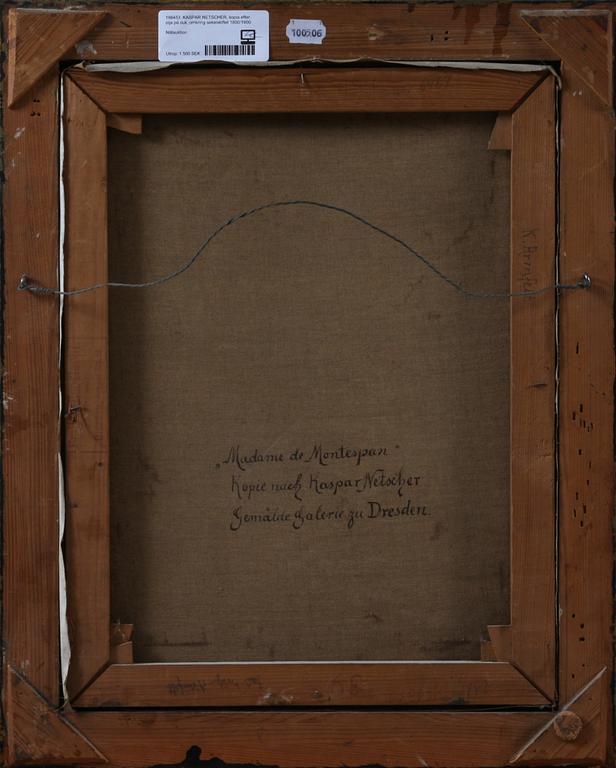 198453. KASPAR NETSCHER, kopia efter
olja på duk, omkring sekelskiftet 1800/1900.
Nätauktion
Utrop: 1 500 SEK
100506
„Madame de Montespan“
Kopie nach Kaspar Netscher
Gemälde Galerie zu Dresden.